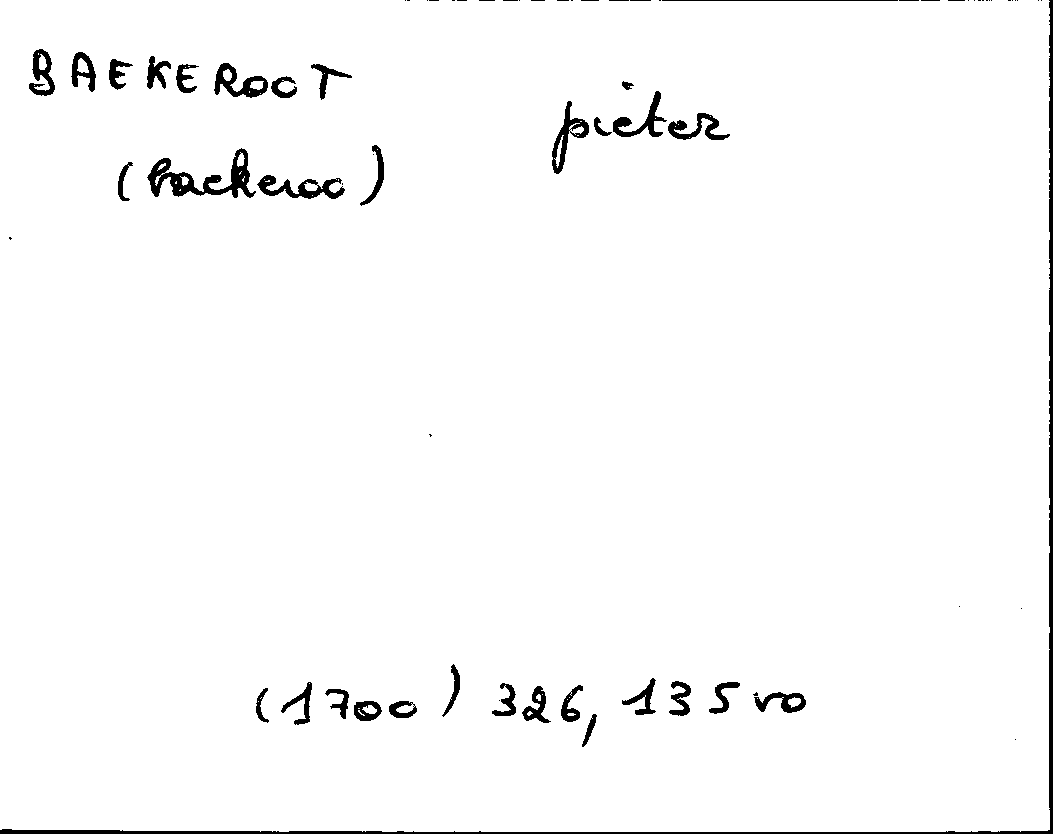 BAEKEROOT pieter
(backeroo)
(1700) 326, 135 vo